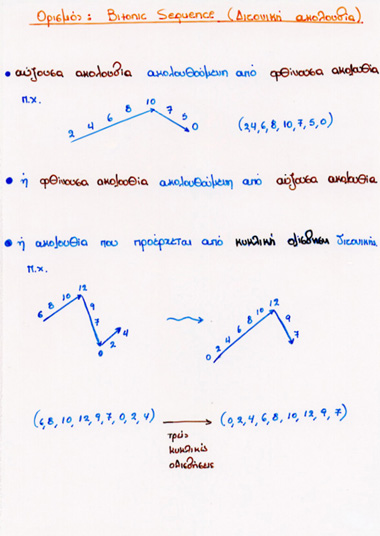 Ορισμός: Bitonic Sequence (Διτονική ακολουθία)
• αύξουσα ακολουθία ακολουθούμενη από φθίνουσα ακολουθία
π.χ.
2 4 6 8 10 7 5 0 (2,4,6,8,10,7,5,0)
• ή φθίνουσα ακολουθία ακολουθούμενη από αύξουσα ακολουθία
• ή ακολουθία που προέρχεται από κυκλική ολίσθηση διτονικής
π.χ.
6 8 10 12 9 7 0 2 4
0 2 4 6 8 10 12 9 7
(6, 8, 10, 12, 9, 7, 0, 2, 4) (0, 2, 4, 6, 8, 10, 12, 9, 7)
τρεις
κυκλικές
ολισθήσεις